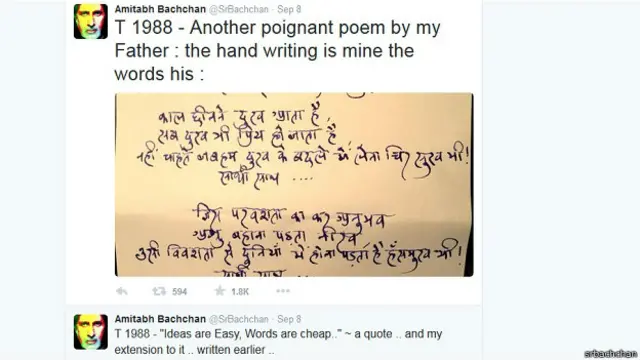 Amitabh Bachchan @SrBachchan · Sep 8
T 1988 - Another poignant poem by my
Father : the hand writing is mine the
words his :
काल छीनने दुख आता है,
जब दुख भी प्रिय हो जाता है
नहीं चाहते जब हम दुख के बदले में लेना चिर सुख भी!
साथी साथ ....
जिस परवशता का कर अनुभव
अश्रु बहाना पड़ता नीरव
उसी विवशता से दुनियाँ में होना पड़ता है हँसमुख भी!
साथी साथ ..
594 1.8K
Amitabh Bachchan @SrBachchan · Sep 8
T 1988 - "Ideas are Easy, Words are cheap.." ~ a quote .. and my
extension to it .. written earlier ..
srbachchan